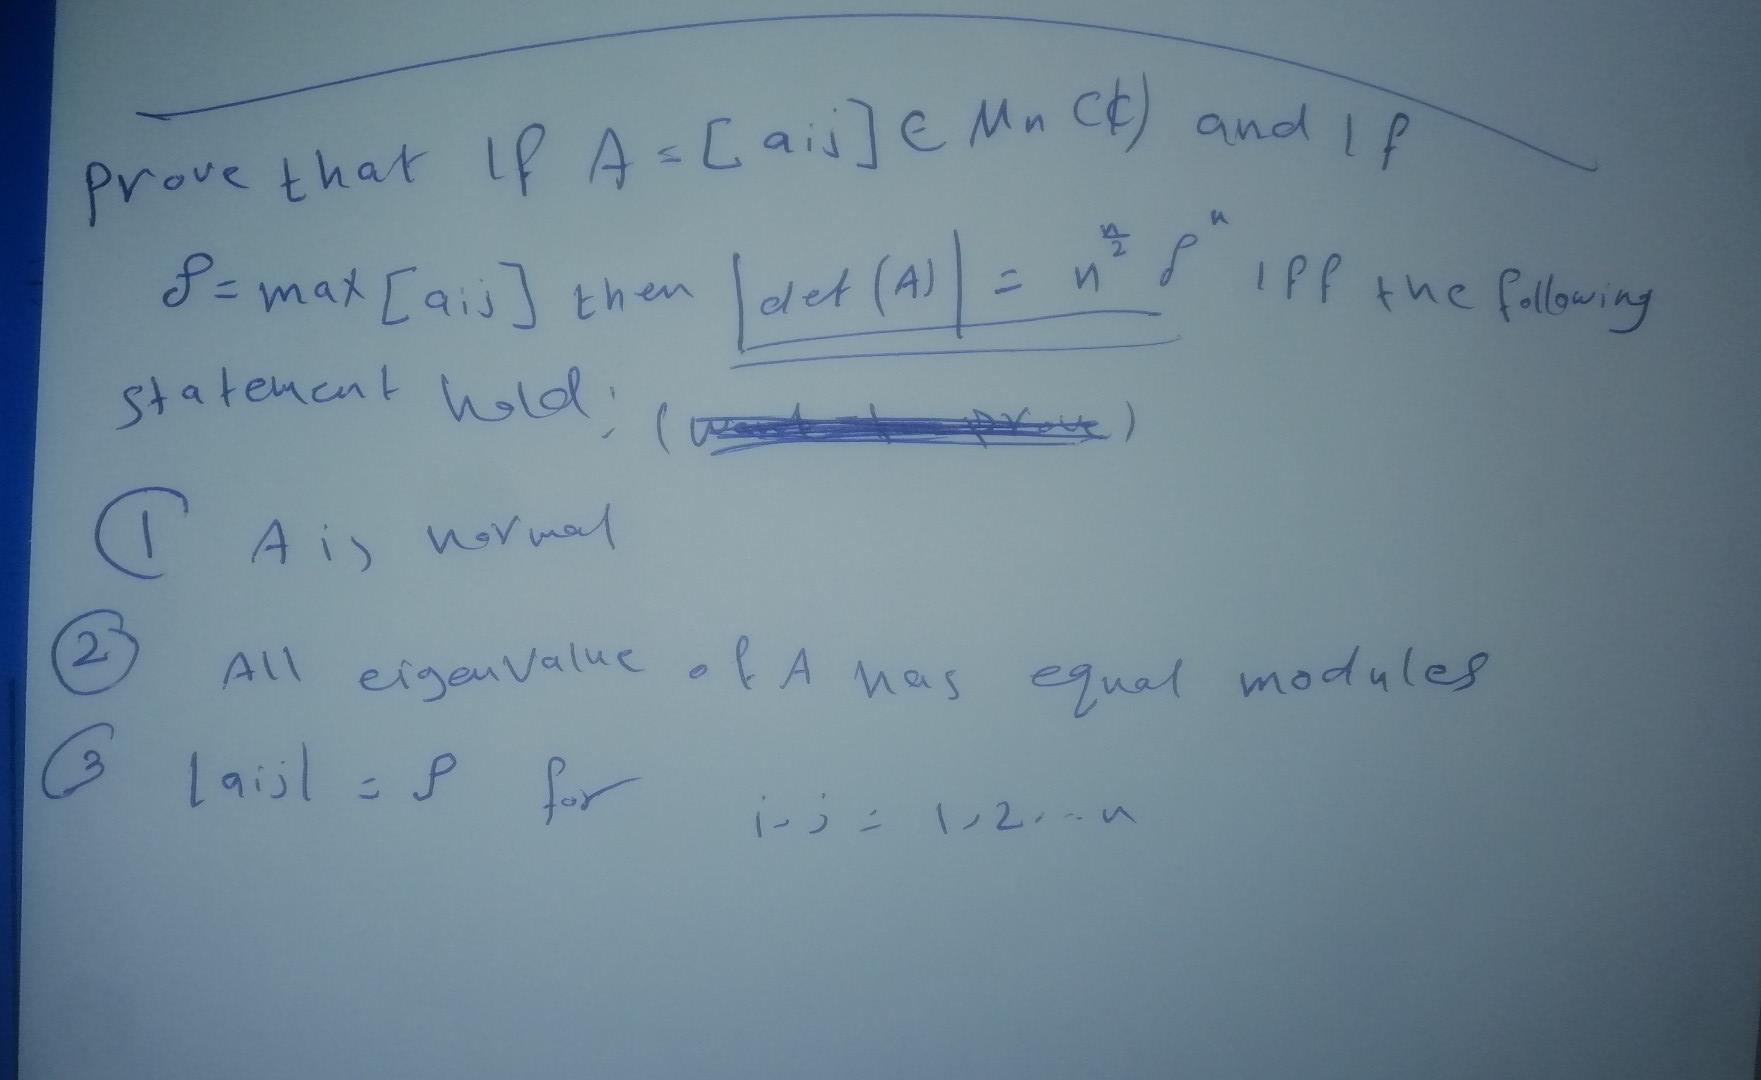 prove that If A = [aij] ∈ Mn (ℂ) and If
ρ = max [aij] then |det (A)| = n^{n/2} ρ^n iff the following
statement hold: ( )
① A is normal
② All eigenvalue of A has equal modules
③ |aij| = ρ for i,j = 1,2,...n